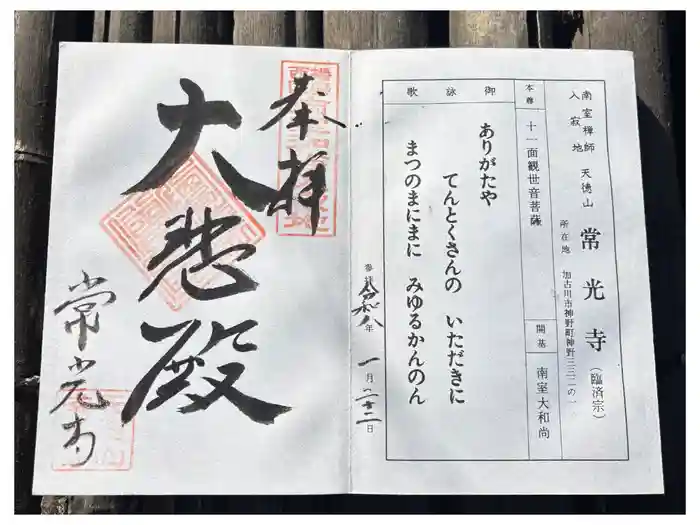 南室禅師
入寂地
天徳山
常光寺
(臨済宗)
所在地
加古川市神野町神野三三二の一
本尊
十一面観世音菩薩
開基
南室大和尚
御詠歌
ありがたや
てんとくさんの いただきに
まつのまにまに みゆるかんのん
参拝
令和八年
一月二十二日
奉拝
大悲殿
常光寺